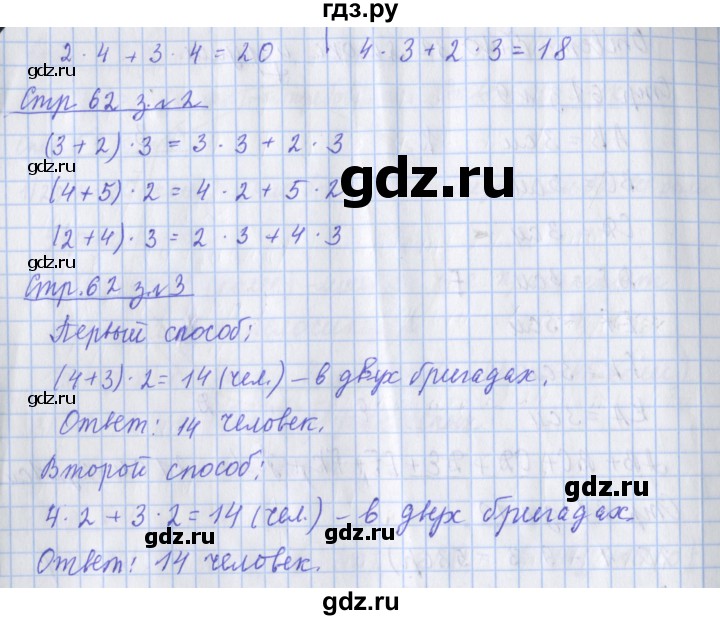 гдз.ру
2 · 4 + 3 · 4 = 20
4 · 3 + 2 · 3 = 18
gdz.ru
Стр 62 з.№2
(3 + 2) · 3 = 3 · 3 + 2 · 3
gdz.ru
gdz.ru
(4 + 5) · 2 = 4 · 2 + 5 · 2
(2 + 4) · 3 = 2 · 3 + 4 · 3
gdz.ru
Стр. 62 з.№3
Первый способ:
(4 + 3) · 2 = 14 (чел.) – в двух бригадах.
gdz.ru
Ответ: 14 человек.
Второй способ:
gdz.ru
4 · 2 + 3 · 2 = 14 (чел.) – в двух бригадах.
gdz.ru
gdz.ru
Ответ: 14 человек.
gdz.ru